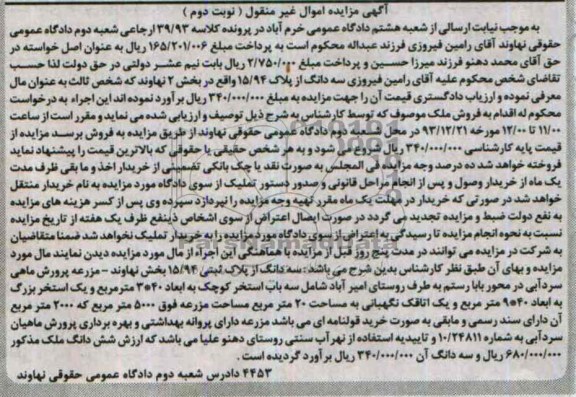 آگهی مزایده اموال غیر منقول ( نوبت دوم )
به موجب نیابت ارسالی از شعبه هشتم دادگاه عمومی خرم آباد در پرونده کلاسه ۳۹/۹۳ ارجاعی شعبه دوم دادگاه عمومی
حقوقی نهاوند آقای رامین فیروزی فرزند عبداله محکوم است به پرداخت مبلغ ۱۶۵/۲۰۱/۰۰۶ ریال به عنوان اصل خواسته در
حق آقای محمد دهنو فرزند میرزا حسین و پرداخت مبلغ ۲/۷۵۰/۰۰۰ ریال بابت نیم عشر دولتی در حق دولت لذا حسب
تقاضای شخص محکوم علیه آقای رامین فیروزی سه دانگ از پلاک ۱۵/۹۴ واقع در بخش ۲ نهاوند که شخص ثالث به عنوان مال
معرفی نموده و ارزیاب دادگستری قیمت آن را جهت مزایده به مبلغ ۳۴۰/۰۰۰/۰۰۰ ریال بر آورد نموده اند این اجراء به درخواست
محکوم له اقدام به فروش ملک موصوف که توسط کارشناسی به شرح ذیل توصیف و ارزیابی شده می نماید و مقرر است از ساعت
۱۱/۰۰ تا ۱۲/۰۰ مورخه ۹۳/۱۲/۲۱ در محل شعبه دوم دادگاه عمومی حقوقی نهاوند از طریق مزایده به فروش برسد مزایده از
قیمت پایه کارشناسی ۳۴۰/۰۰۰/۰۰۰ ریال شروع می شود و به هر شخص حقیقی یا حقوقی که بالاترین قیمت را پیشنهاد نماید
فروخته خواهد شد ده درصد وجه مزایده فی المجلس به صورت نقد یا چک بانکی تضمینی از خریدار اخذ و ما بقی ظرف مدت
یک ماه از خریدار وصول و پس از انجام مراحل قانونی و صدور دستور تملیک از سوی دادگاه مورد مزایده به نام خریدار منتقل
خواهد شد در صورتی که خریدار در مهلت یک ماه مقرر بقیه وجه مزایده را نپردازد سپرده وی پس از کسر هزینه های مزایده
به نفع دولت ضبط و مزایده تجدید می گردد در صورت ایصال اعتراض از سوی اشخاص ذینفع ظرف یک هفته از تاریخ مزایده
نسبت به نحوه انجام مزایده تا رسیدگی به اعتراض از سوی دادگاه مورد مزایده را به خریدار تملیک نخواهد شد ضمنا متقاضیان
به شرکت در مزایده می توانند در مدت پنج روز قبل از مزایده با هماهنگی این اجراء از مال مورد مزایده دیدن نمایند مال مورد
مزایده و بهای آن طبق نظر کارشناس بدین شرح می باشد : سه دانگ از پلاک ثبتی ۱۵/۹۴ بخش نهاوند - مزرعه پرورش ماهی
سردآبی در محور بابا رستم به طرف روستای امیر آباد شامل سه باب استخر کوچک به ابعاد ۴۰*۳ مترمربع و یک استخر بزرگ
به ابعاد ۴۰*۹ متر مربع و یک اتاقک نگهبانی به مساحت ۲۰ متر مربع مساحت مزرعه فوق ۵۰۰۰ متر مربع که ۲۰۰۰ متر مربع
آن دارای سند رسمی و مابقی به صورت خرید قولنامه ای می باشد مزرعه دارای پروانه بهداشتی و بهره برداری پرورش ماهیان
سردآبی به شماره ۱۰/۲۴۸۱۱ و تاییدیه استفاده از نهر آب سنتی روستای دهنو علیا می باشد که ارزش شش دانگ ملک مذکور
۶۸۰/۰۰۰/۰۰۰ ریال و سه دانگ آن ۳۴۰/۰۰۰/۰۰۰ ریال بر آورد گردیده است .
۴۴۵۳ دادرس شعبه دوم دادگاه عمومی حقوقی نهاوند